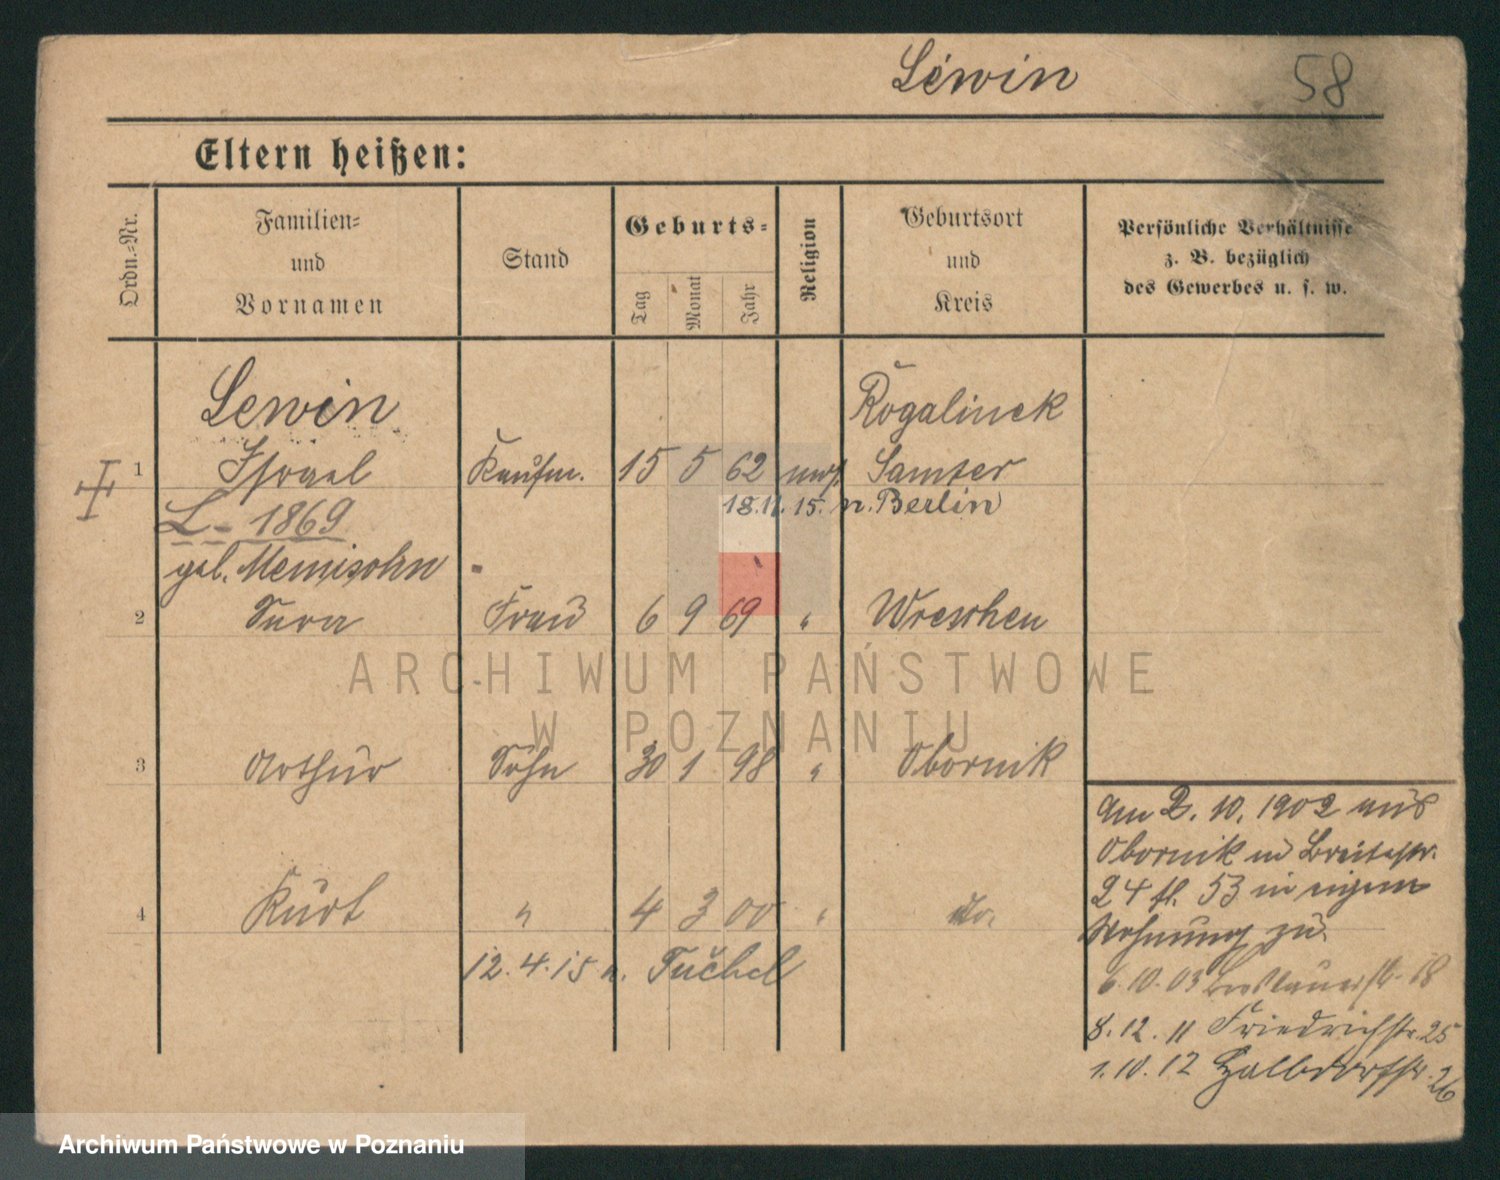 Lewin 58
Eltern heißen:
Ordn.=Nr.
Familien=
und
Vornamen
Stand
Geburts=
Tag
Monat
Jahr
Religion
Geburtsort
und
Kreis
Persönliche Verhältnisse
z. B. bezüglich
des Gewerbes u. s. w.
Lewin Rogalinek
1 Israel Kaufm. 15 5 62 mos. Samter
L- 1869 18.11.15. n. Berlin
geb.
2 Sara Frau 6 9 69 " Wreschen
ARCHIWUM PAŃSTWOWE
W POZNANIU
3 Arthur Sohn 30 1 98 " Obornik
Am 2.10.1902 aus
Obornik n Breitestr.
24 fl. 53 in eigene
4 Kurt " 4 3 00 " do.
Wohnung zu.
12.4.15 n. Tuchel
6.10.03 18
8.12.11 Friedrichstr. 25
1.10.12 Halbdorfstr. 26
Archiwum Państwowe w Poznaniu